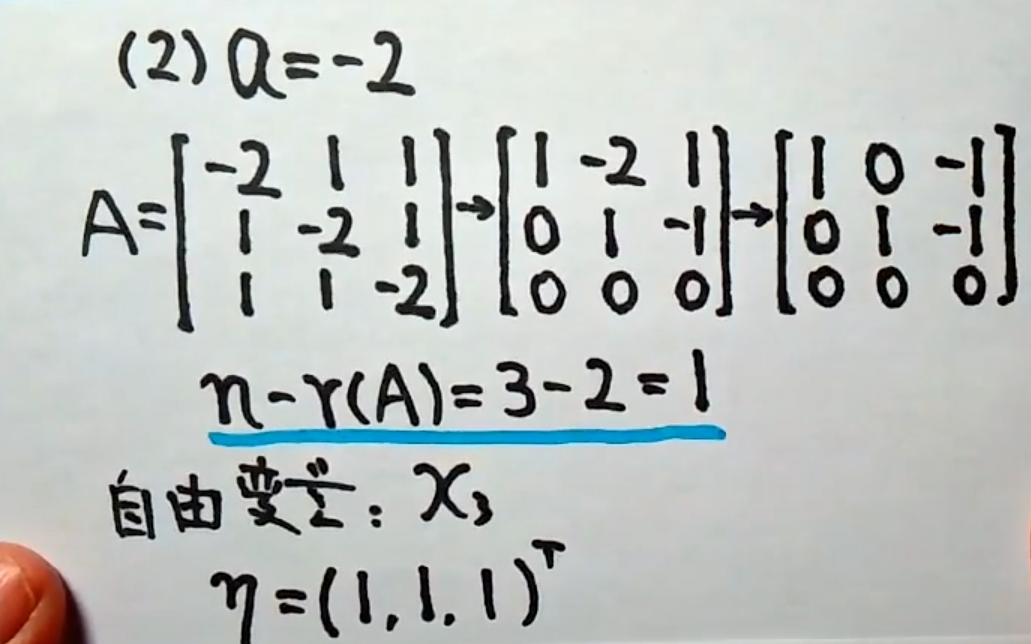 (2) a=-2
A=[-2 1 1; 1 -2 1; 1 1 -2]→[1 -2 1; 0 1 -1; 0 0 0]→[1 0 -1; 0 1 -1; 0 0 0]
n-r(A)=3-2=1
自由变量: x₃
η=(1,1,1)ᵀ